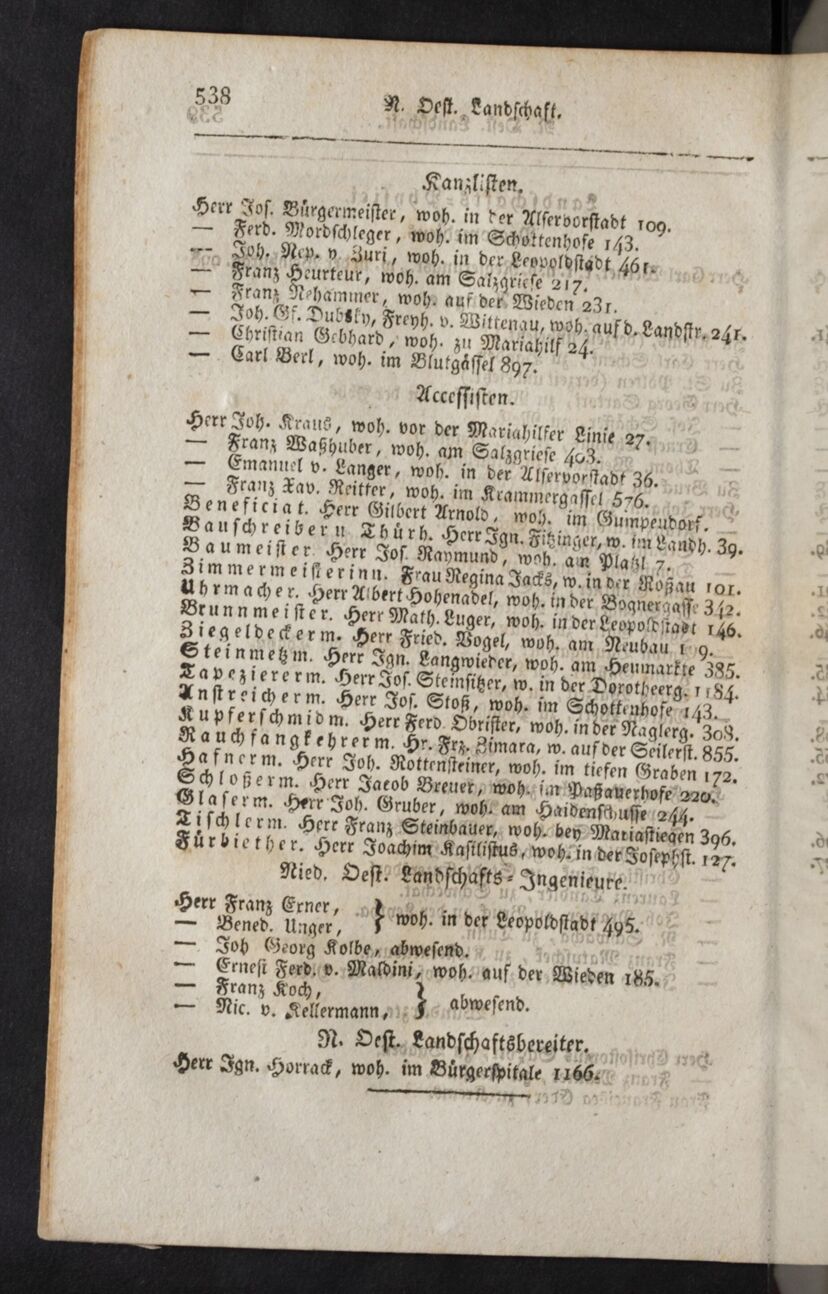 538
N. Oest. Landschaft.
Kanzlisten.
Herr Jos. Bürgermeister, woh. in der Alservorstadt 109.
— Ferd. Mordschleger, woh. im Schottenhofe 143.
— Joh. Nep. v. Zuri, woh. in der Leopoldstadt 461.
— Franz Heurteur, woh. am Salzgriese 217.
— Franz Nehammer, woh. auf der Wieden 231.
— Joh. Gf. Dubsky, Freyh. v. Wittenau, woh. auf d. Landstr. 241.
— Christian Gebhard, woh. zu Mariahilf 24.
— Carl Berl, woh. im Blutgässel 897.
Accessisten.
Herr Joh. Kraus, woh. vor der Mariahilfer Linie 27.
— Franz Waßhuber, woh. am Salzgriese 403.
— Emanuel v. Langer, woh. in der Alservorstadt 36.
— Franz Xav. Reitter, woh. im Krammergassel 576.
Beneficiat. Herr Gilbert Arnold, woh. im Gumpendorf.
Bauschreiber u Thürh. Herr Ign. Fitzinger, w. im Landh. 39.
Baumeister. Herr Jos. Raymund, woh. am Platzl 7.
Zimmermeisterinn. Frau Regina Jacks, w. in der Roßau 101.
Uhrmacher. Herr Albert Hohenadel, woh. in der Bognergasse 342.
Brunnmeister. Herr Math. Luger, woh. in der Leopoldstadt 146.
Ziegeldeckerm. Herr Fried. Vogel, woh. am Neubau
Steinmetzm. Herr Ign. Langwieder, woh. am Heumarkte 385.
Tapeziererm. Herr Jos. Steinsitzer, w. in der Dorotheerg. 1184.
Anstreicherm. Herr Jos. Stoß, woh. im Schottenhofe 143.
Kupferschmidm. Herr Ferd. Obrister, woh. in der Naglerg. 308.
Rauchfangkehrerm. Hr. Frz. Zimara, w. auf der Seilerst. 855.
Hafnerm. Herr Joh. Rottensteiner, woh. im tiefen Graben 172.
Schloßerm. Herr Jacob Breuer, woh. im Paßauerhofe 220.
Glaserm. Herr Joh. Gruber, woh. am Haidenschusse 244.
Tischlerm. Herr Franz Steinbauer, woh. bey Mariastiegen 396.
Fürbiether. Herr Joachim Kasilistus, woh. in der Josephst. 127.
Nied. Oest. Landschafts-Ingenieure.
Herr Franz Exner, }
— Bened. Unger, } woh. in der Leopoldstadt 495.
— Joh Georg Kolbe, abwesend.
— Ernest Ferd. v. Maldini, woh. auf der Wieden 185.
— Franz Koch, }
— Nic. v. Kellermann, } abwesend.
N. Oest. Landschaftsbereiter.
Herr Ign. Horrack, woh. im Bürgerspitale 1166.